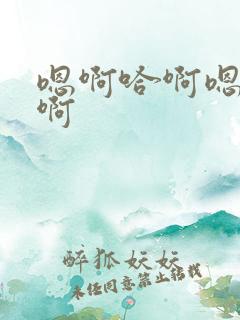 嗯啊哈~啊嗯
啊
醉狐妖妖
未经同意禁止转载